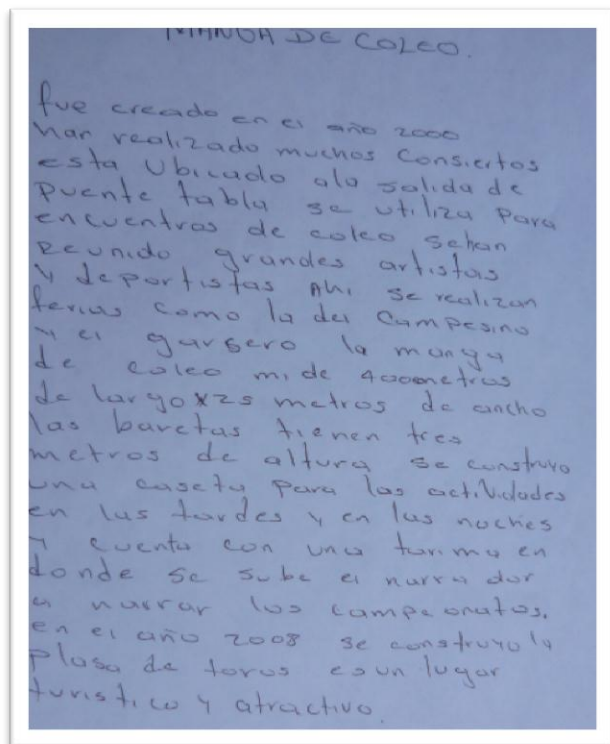 MANGA DE COLEO.
fue creado en el año 2000
han realizado muchos consiertos
esta Ubicado ala salida de
puente tabla se utiliza para
encuentros de coleo sehan
reunido grandes artistas
y deportistas Ahi se realizan
ferias como la del campesino
y el garsero la manga
de coleo mide 4000metros
de largo x 25 metros de ancho
las baretas tienen tres
metros de altura se construyo
una caseta para las actividades
en las tardes y en las noches
y cuenta con una tarima en
donde se sube el narra dor
a narrar los campeonatos.
en el año 2008 se construyo la
plasa de toros es un lugar
turistico y atractivo.